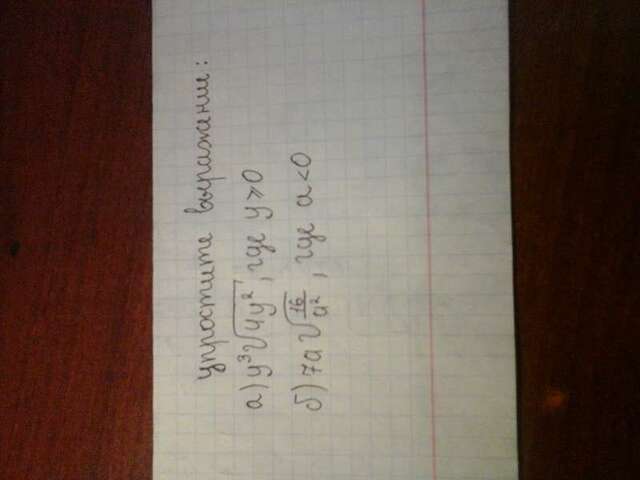 упростите выражение:
а) y³√4y², где y≥0
б) 7a√16/a², где a<0